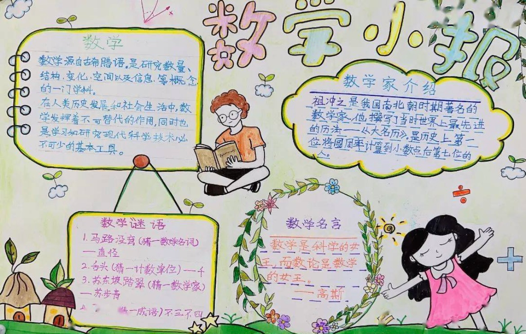 数学小报
数学
数学源自古希腊语,是研究数量、
结构、变化、空间以及信息等概念
的一门学科。
在人类历史发展和社会生活中,数
学发挥着不可替代的作用,同时也
是学习和研究现代科学技术必
不可少的基本工具。
数学家介绍
祖冲之是我国南北朝时期著名的
数学家,他撰写了当时世界上最先进
的历法——《大名历》,是历史上第一
位将圆周率计算到小数点后第七位的
人
数学谜语
1.马路没弯(猜一数学名词)
——直径
2.舌头(猜一计数单位)——千
3.苏东坡励翠(猜一数学家)
——苏步青
猜一成语)不三不四
数学名言
数学是科学的女
王,而数论是数学
的女王。
——高斯